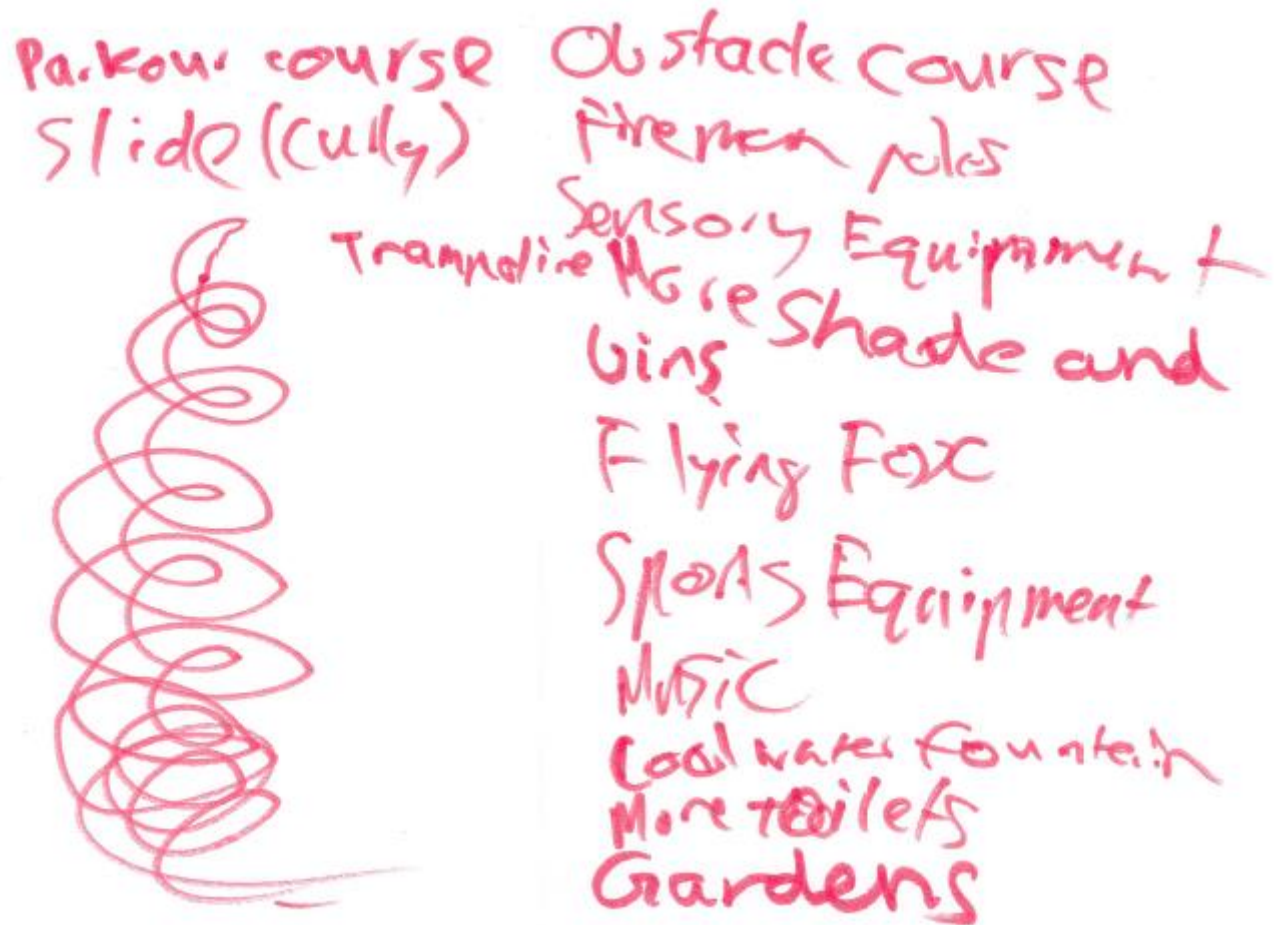 Parkour course
Slide (Cully)
Obstacle course
Fireman poles
Sensory Equipmment
Trampoline
More Shade and
bins
Flying Fox
Sports Equipment
Music
Cool water fountain
More toilets
Gardens